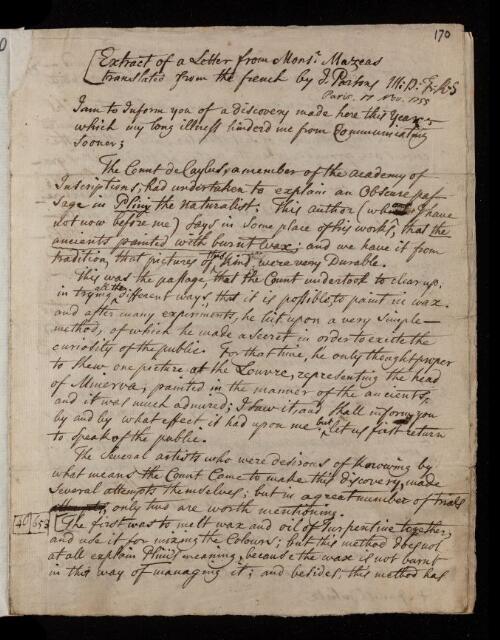 170
[Extract of a Letter from Monsr. Mazeas
translated from the french by J. Parsons M:D. F:R:S
Paris. 17 Nov. 1755
I am to Inform you of a discovery made here this Year
which my long illness hinder'd me from Communicating
sooner;
The Count de Caylus, a member of the academy of
Inscriptions, had undertaken to explain an Obscure pas
sage in Pliny the Naturalist: This author ( I have
not now before me) says in some place of his works, that the
ancients painted with burnt wax; and we have it from
tradition, that pictures of this Kind were very Durable.
This was the passage, that the Count undertook to clear up;
in trying all the different ways, that it is possible, to paint in wax.
and after many experiments, he hit upon a very simple
method, of which he made a secret in order to excite the
curiosity of the public. For that time, he only thought proper
to shew one picture at the Louvre, representing the head
of Minerva, painted in the manner of the ancients;
and it was much admired; I saw it, and shall inform you
by and by what effect it had upon me but let us first return
to speak of the public.
The Several artists who were desirous of knowing by
what means the Count Came to make this discovery, made
several attempts themselves; but in a great number of trials
only two are worth mentioning.
40 653 [The first was to melt wax and oil of Turpentine together,
and use it for mixing the Colours; but this method does not
at all explain Plinis meaning, because the wax is not burnt
in this way of managing it; and besides, this method has